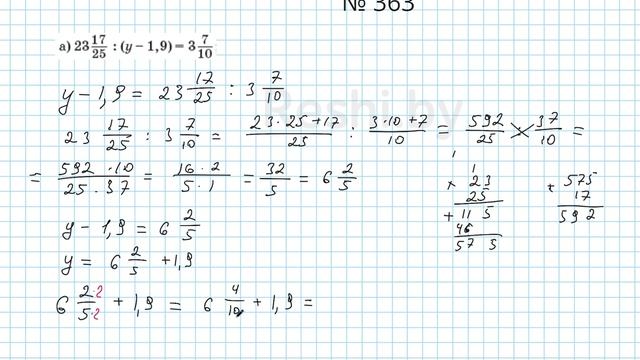 № 363
а) 23 17/25 : (y − 1,9) = 3 7/10
y − 1,9 = 23 17/25 : 3 7/10
23 17/25 : 3 7/10 = (23·25+17)/25 : (3·10+7)/10 = 592/25 × 37/10 =
= (592·10)/(25·37) = (16·2)/(5·1) = 32/5 = 6 2/5
1
1
× 23
25
+ 11 5
46
57 5
× 575
17
592
y − 1,9 = 6 2/5
y = 6 2/5 + 1,9
6 2·2/5·2 + 1,9 = 6 4/10 + 1,9 =
Reshi.by